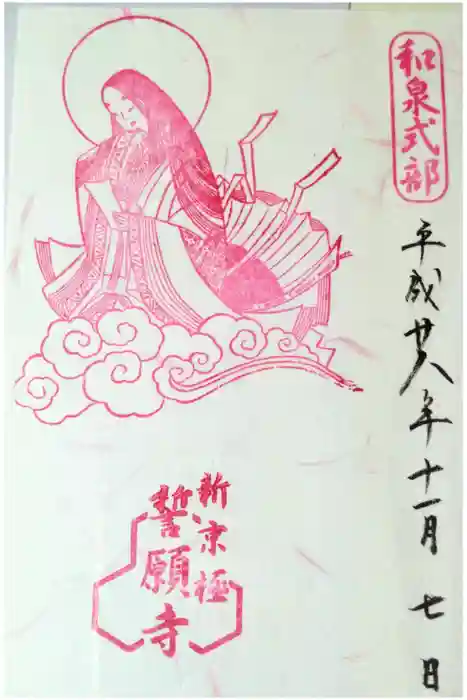 和泉式部
平成廿八年十一月 七 日
新京極
誓願寺